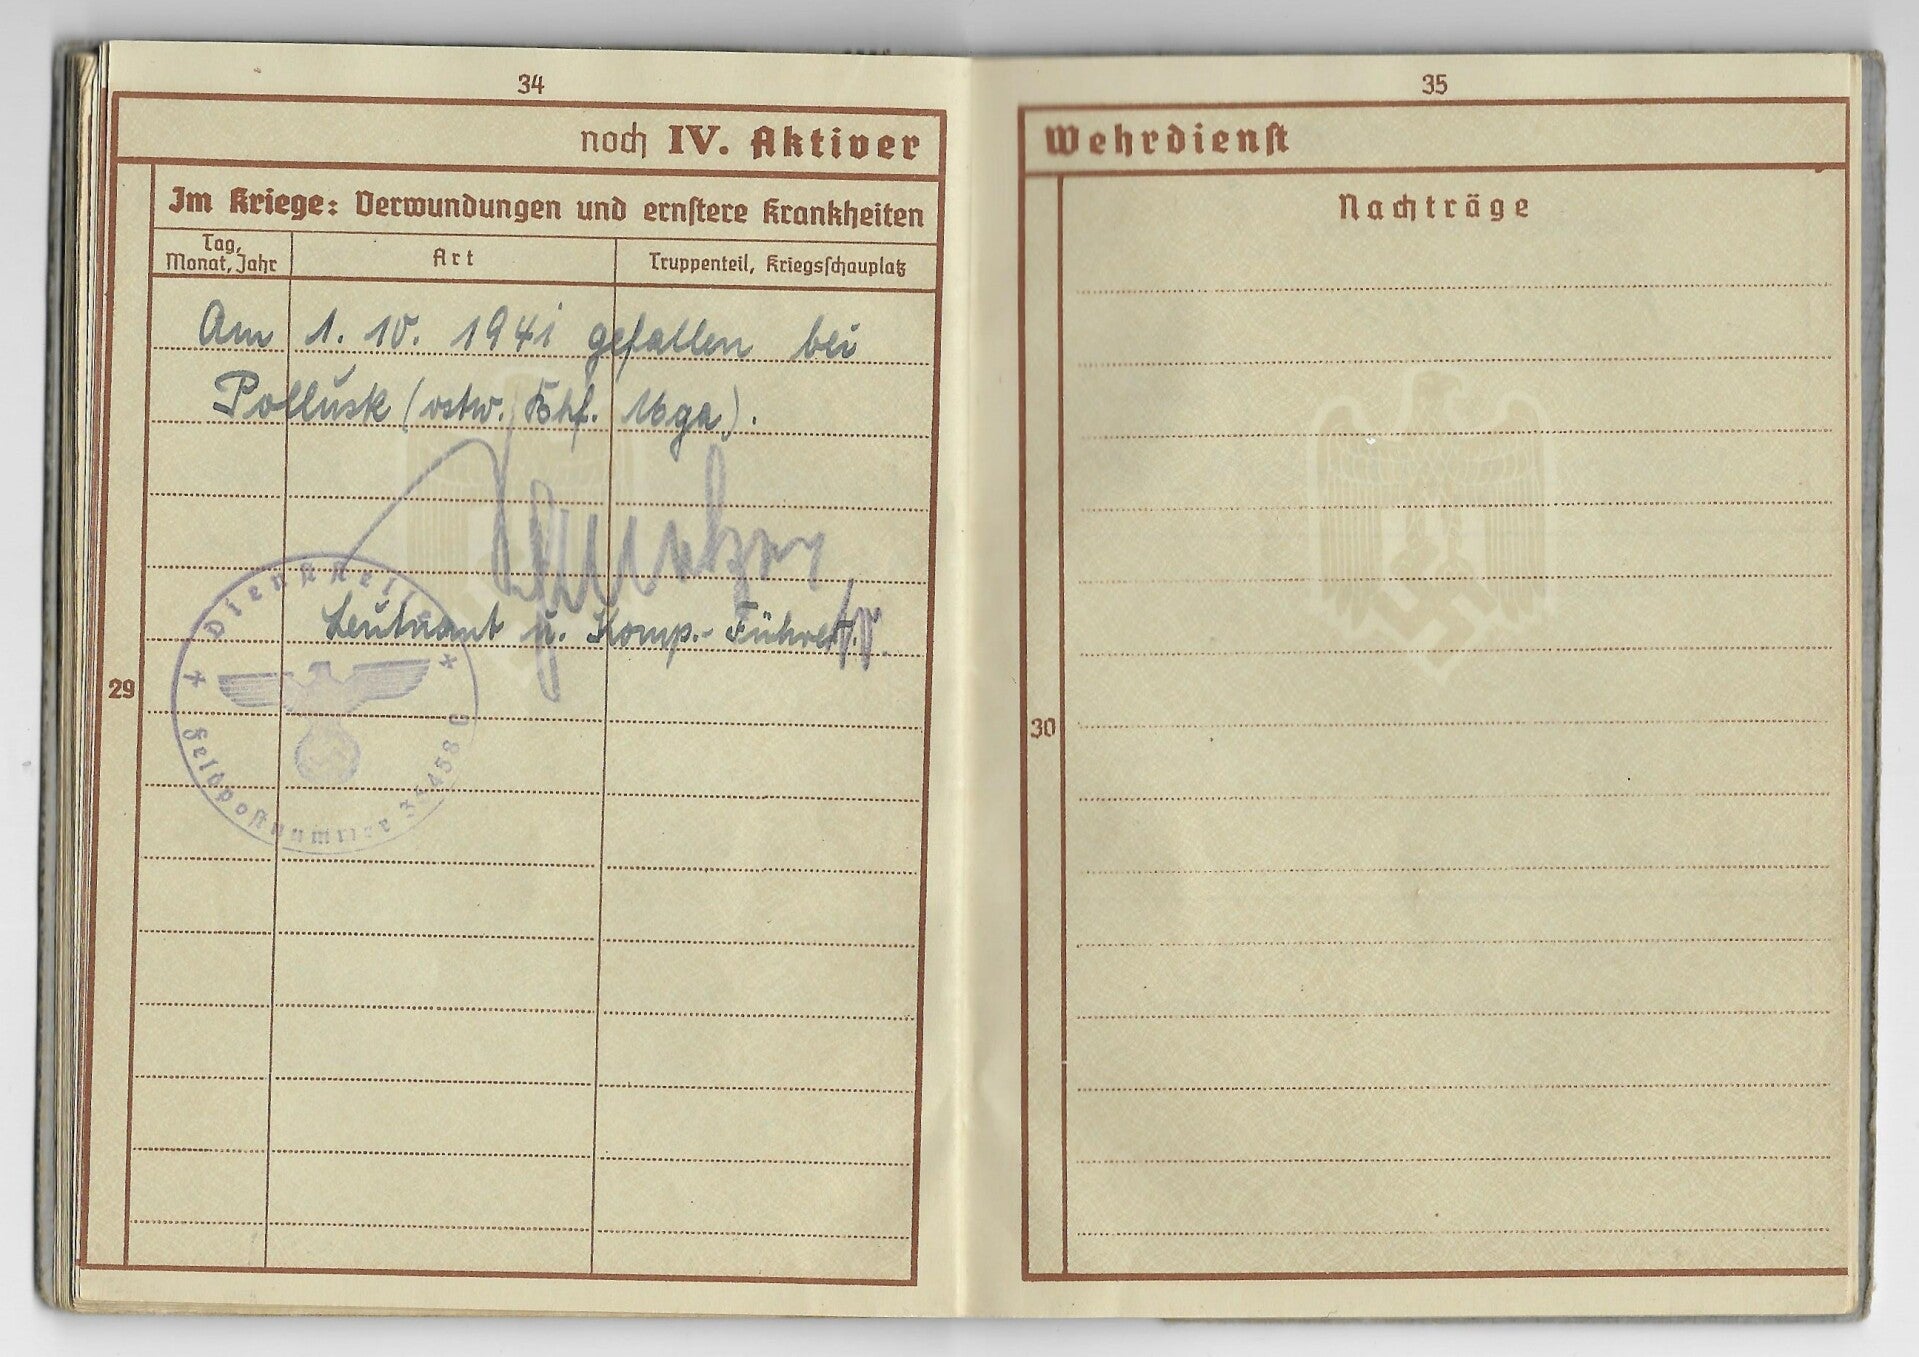 34
noch IV. Aktiver
Im Kriege: Verwundungen und ernstere Krankheiten
Tag, Monat, Jahr
Art
Truppenteil, Kriegsschauplatz
Am 1. 10. 1941 gefallen bei
(ostw. Bhf. Mga).
Leutnant u. Komp.-Führer
Dienststelle
Feldpostnummer
29
35
Wehrdienst
Nachträge
30